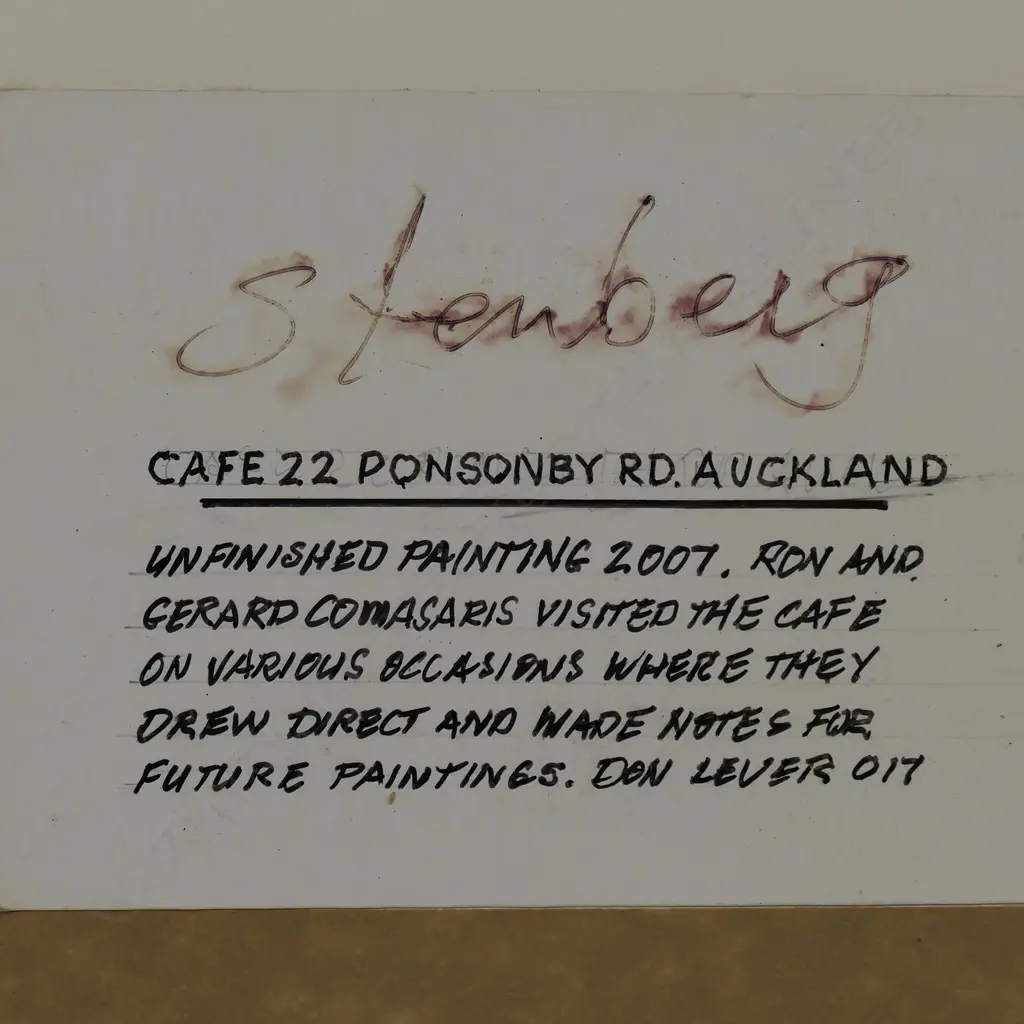 Stenberg
CAFE 22 PONSONBY RD. AUCKLAND
UNFINISHED PAINTING 2007. RON AND
GERARD COMASARIS VISITED THE CAFE
ON VARIOUS OCCASIONS WHERE THEY
DREW DIRECT AND MADE NOTES FOR
FUTURE PAINTINGS. DON LEVER 017